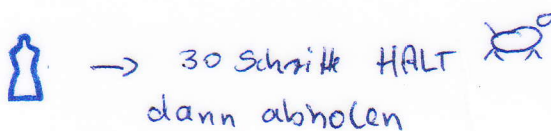 → 30 Schritte HALT
dann abholen